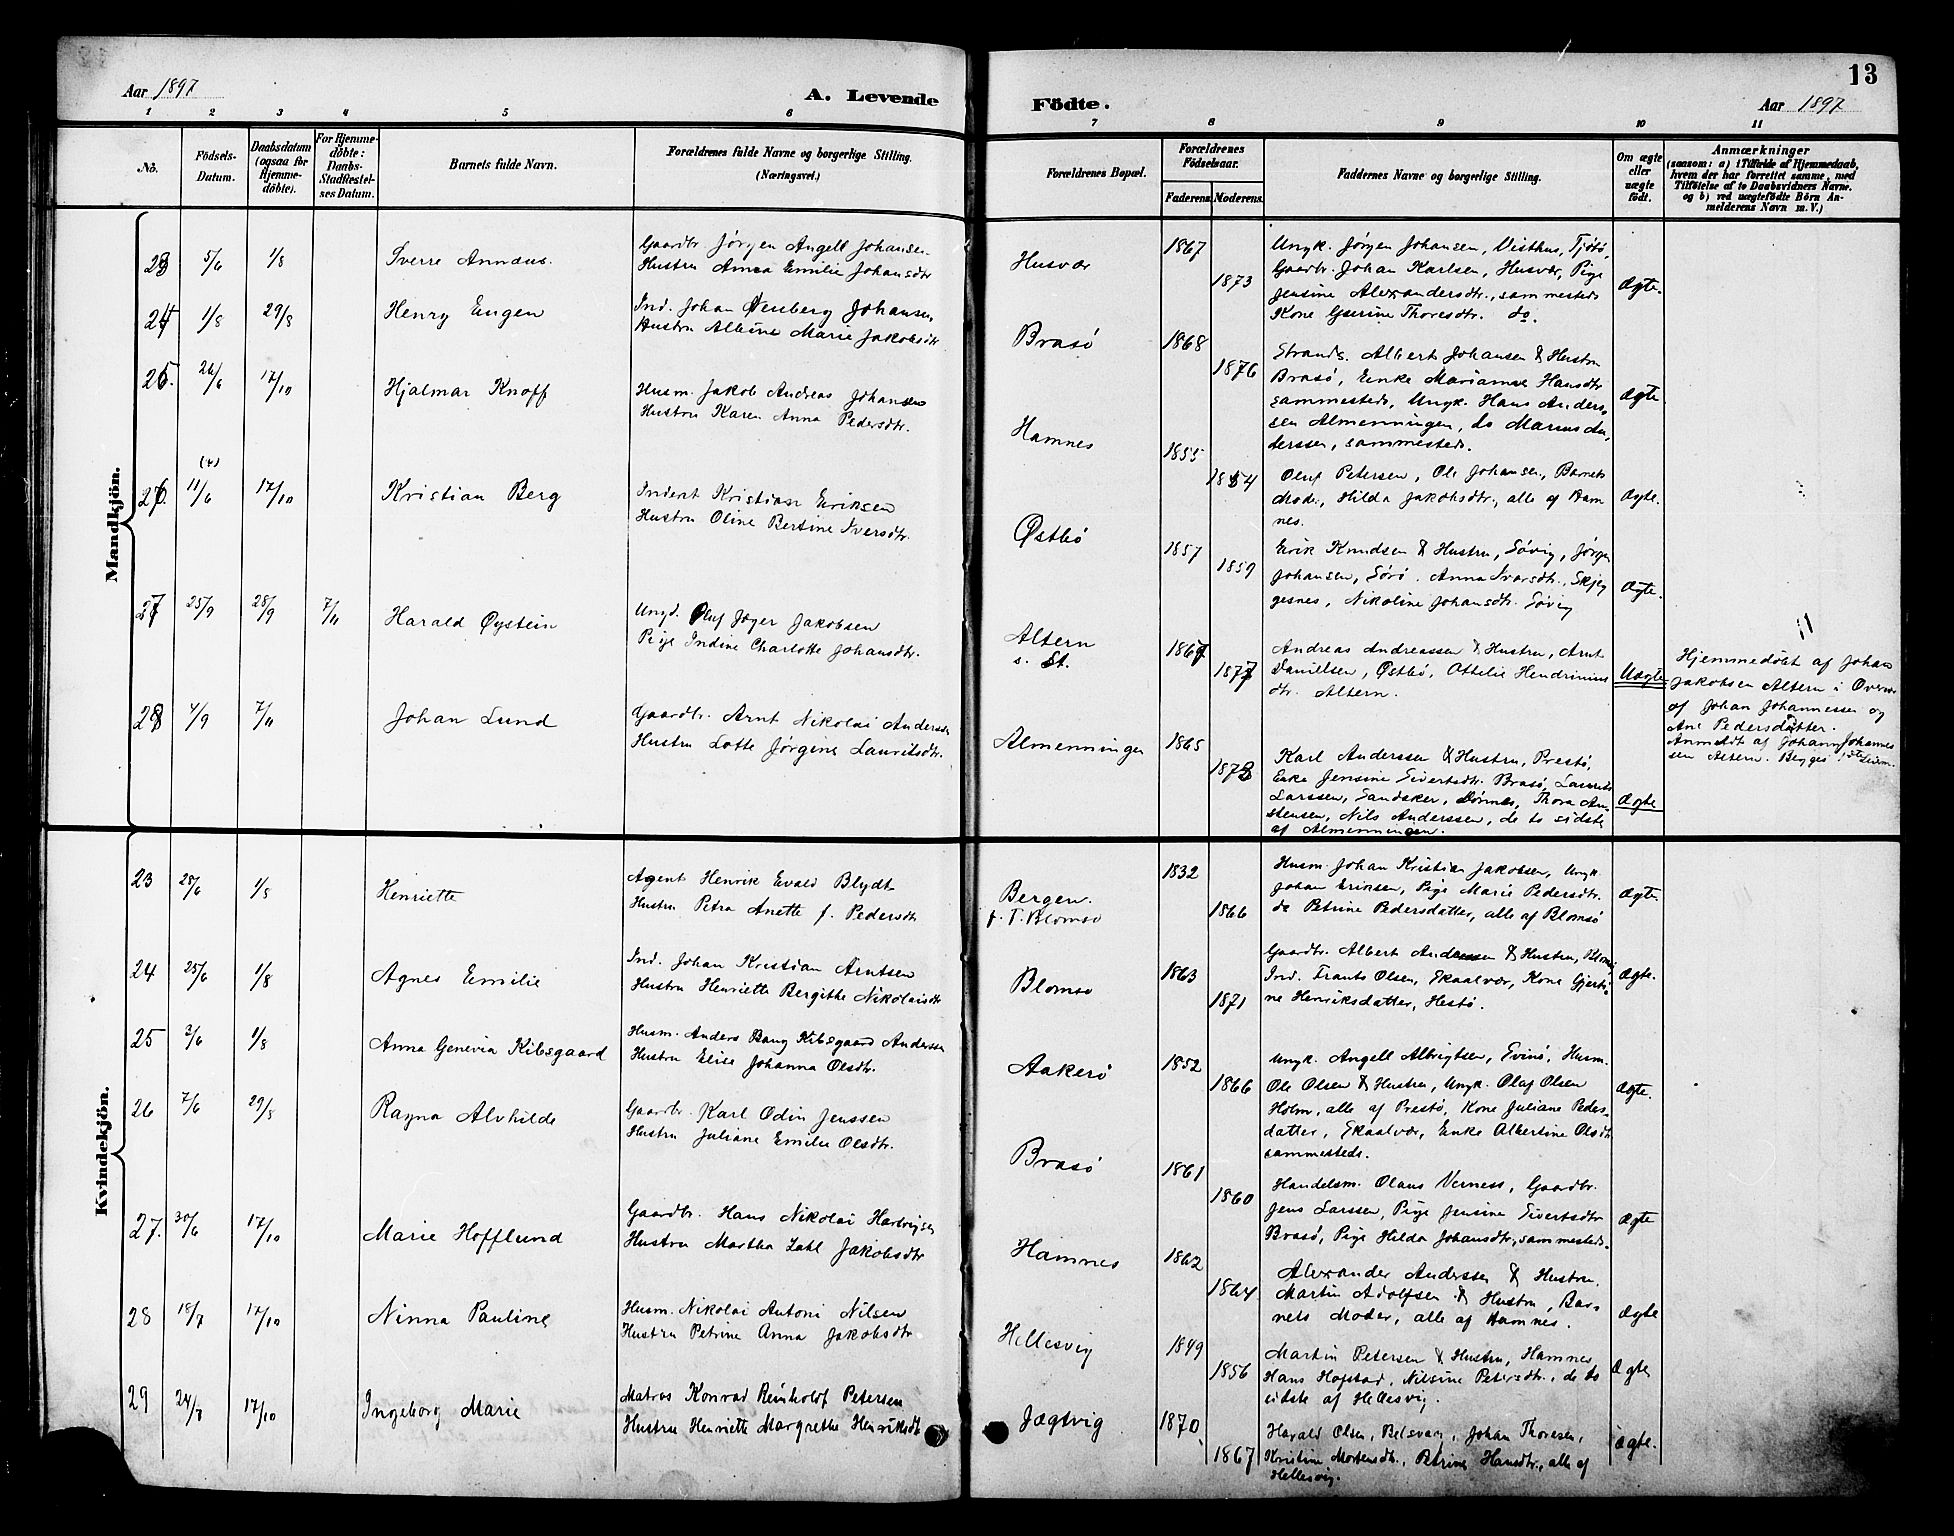 13
Aar 1897
A. Levende
Födte.
Aar 1897
1 2 3 4 5 6 7 8 9 10 11
No.
Födsels-Datum.
Daabsdatum (ogsaa for Hjemme-döbte).
For Hjemme-döbte: Daabs-Stadfæstel-ses Datum.
Barnets fulde Navn.
Forældrenes fulde Navne og borgerlige Stilling.
(Næringsvei.)
Forældrenes Bopæl.
Forældrenes Födselsaar.
Faderens. Moderens.
Faddernes Navne og borgerlige Stilling.
Om ægte eller uægte födt.
Anmærkninger
(saasom: a) i Tilfælde af Hjemmedaab,
hvem der har forrettet samme, med
Tilföielse af to Daabsvidners Navne.
og b) ved uægtefödte Börn An-
melderens Navn m. V.)
Mandkjön.
23 5/6 1/8 Sverre Annæus.
Gaardbr. Jørgen Angell Johansen
Hustru Anna Emilie Johansdtr
Husvær 1867 1873
Ungk. Jørgen Johansen, Visthus, Tjøtø,
Gaardbr. Johan Karlsen, Husvær, Pige
Jensine Alexandersdtr., sammesteds
Kone Thoresdtr. do.
Ægte.
24 1/8 29/8 Henry Eugen
Ind. Johan Johansen,
Hustru Albine Marie Jakobsdtr
Brasø 1868 1876
Strands. Albert Johansen & Hustru
Brasø, Enke Marianne Hansdtr
sammesteds, Ungk. Hans Anders-
sen Almenningen, do Marius An-
derssen, sammesteds.
Ægte.
25. 26/6 17/10 Hjalmar Knoff
Husm. Jakob Andreas Johansen
Hustru Karen Anna Pedersdtr.
Hamnes 1855 1854
Oluf Petersen, Ole Johansen, Barnets
Moder, Hilda Jakobsdtr., alle af Ham
nes.
Ægte.
26. 11/6 17/10 Kristian Berg
Inderst Kristian Eriksen
Hustru Oline Bertine Iversdtr.
Østbø 1857 1859
Erik Knudsen & Hustru, Søvig, Jørgen
Johansen, Sørø. Anna Ivarsdtr., Skjeg
gesnes, Nikoline Johansdtr. Søvig
Ægte.
27 25/9 28/9 7/11 Harald Øystein
Ungd. Oluf Jæger Jakobsen
Pige Indine Charlotte Johansdtr.
Altern
s. St. 1867 1877
Andreas Andreassen & Hustru, Arnt
Danielsen, Østbø, Ottelie Hendrinius
dtr. Altern.
Uægte
Hjemmedøbt af Johan
Jakobsen Altern i Overvær
af Johan Johannessen og
Ane Pedersdatter.
Anmeldt af Johan Johannes
sen Altern. Begges
28 4/9 7/11 Johan Lund
Gaardbr. Arnt Nikolai Andersen
Hustru Lotte Jørgine Lauritsdtr.
Almenningen 1865 1873
Karl Anderssen & Hustru, Prestø,
Enke Jensine Sivertsdtr. Brasø, Laurits
Larssen, Sandsker, Dønnes, Thora Arn
stensen, Nils Anderssen, de to sidste
af Almenningen.
Ægte
Kvindekjön.
23 28/6 1/8 Henriette
Agent Henrik Evald Blydt
Hustru Petra Anette f. Pedersdtr
Bergen.
f. T. Blomsø 1832 1866
Husm. Johan Kristian Jakobsen, Ungk.
Johan Eriksen, Pige Marie Pedersdtr.
do Petrine Pedersdatter, alle af Blomsø
Ægte.
24 25/6 1/8 Agnes Emilie
Ind. Johan Kristian Arntsen
Hustru Henriette Bergithe Nikolaisdtr
Blomsø 1863 1871
Gaardbr. Albert Anderssen & Hustru, Blomsø,
Ind. Frants Olsen, Skaalvær, Kone Gjerti-
ne Henriksdatter, Hestø.
Ægte.
25 3/6 1/8 Anna Genevia Kibsgaard
Husm. Anders Bang Kibsgaard Andersen
Hustru Elise Johanna Olsdtr.
Aakerø 1852 1866
Ungk. Angell Albrigtsen, Svinø, Husm.
Ole Olsen & Hustru, Ungk. Olaf Olsen
Holm, alle af Prestø, Kone Juliane Peders-
datter, Skaalvær, Enke Albertine Olsdtr
sammesteds.
Ægte.
26 7/6 29/8 Ragna Alvhilde
Gaardbr. Karl Odin Jenssen
Hustru Juliane Emilie Olsdtr.
Brasø 1861 1860
Handelsm. Olaus Verness, Gaardbr.
Jens Larssen, Pige Jensine Sivertsdtr
Brasø, Pige Hilda Johansdtr, sammesteds.
Ægte
27. 30/6 17/10 Marie Hofflund
Gaardbr. Hans Nikolai Hartvigsen
Hustru Martha Zahl Jakobsdtr
Hamnes 1862 1864
Alexander Anderssen & Hustru.
Martin Adolfsen & Hustru, Bar-
nets Moder, alle af Hamnes.
Ægte
28 18/7 17/10 Ninna Pauline
Husm. Nikolai Antoni Nilsen
Hustru Petrine Anna Jakobsdtr
Hellesvig 1849 1856
Martin Petersen & Hustru, Hamnes
Hans Hofstad, Nilsine Petersdtr., de to
sidste af Hellesvig.
Ægte
29 24/8 17/10 Ingeborg Marie
Matros Konrad Reinholdt Petersen
Hustru Henriette Margrethe Henriksdtr
Jægtvig 1870 1867
Harald Olsen, Belsvaag, Johan Thoresen,
Kristine Mortensdtr., Petrine Hansdtr., alle af
Hellesvig.
Ægte.